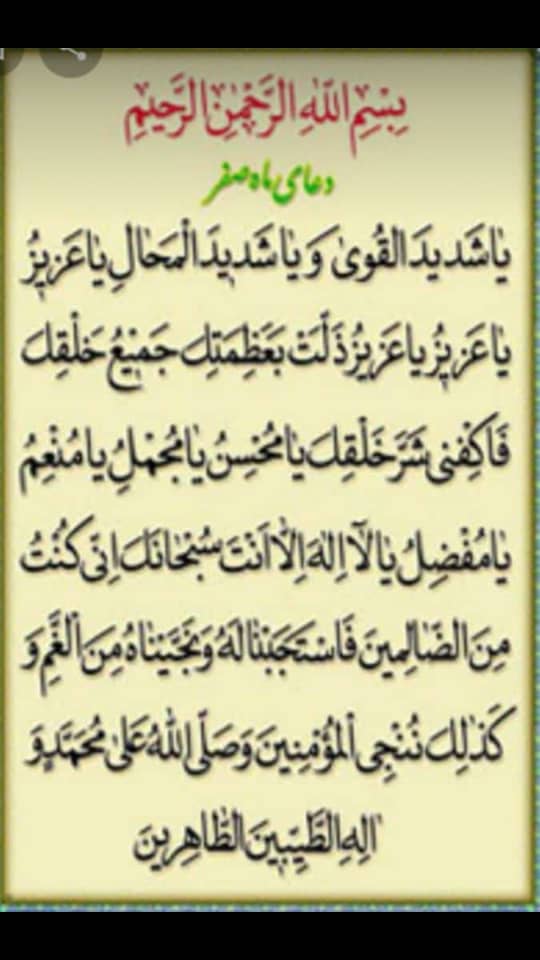 بِسْمِ اللّٰهِ الرَّحْمٰنِ الرَّحیمِ
دعای ماه صفر
یٰا شَدیدَ الْقُویٰ وَ یٰا شَدیدَ الْمَحٰالِ یٰا عَزیزُ
یٰا عَزیزُ یٰا عَزیزُ ذَلَّتْ بِعَظَمَتِكَ جَمیعُ خَلْقِكَ
فَاكْفِنی شَرَّ خَلْقِكَ یٰا مُحْسِنُ یٰا مُجْمِلُ یٰا مُنْعِمُ
یٰا مُفْضِلُ یٰا لٰا اِلٰهَ اِلّٰا اَنْتَ سُبْحٰانَكَ اِنّی كُنْتُ
مِنَ الضّٰالِمینَ فَاسْتَجَبْنٰا لَهُ وَ نَجَّیْنٰاهُ مِنَ الْغَمِّ وَ
كَذٰلِكَ نُنْجِی الْمُؤْمِنینَ وَ صَلَّی اللّٰهُ عَلیٰ مُحَمَّدٍ وَ
اٰلِهِ الطَّیِّبینَ الطّٰاهِرینَ